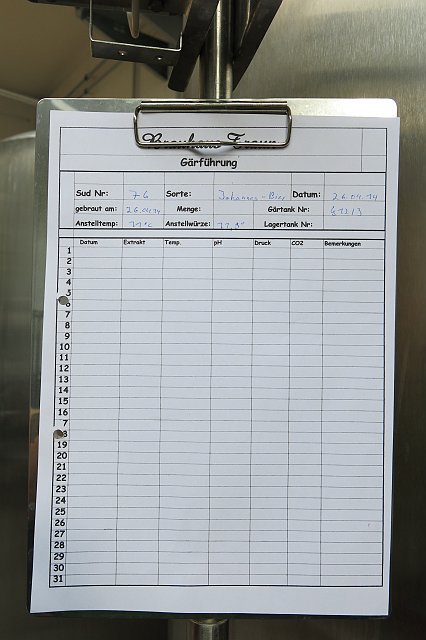 Brauhaus
Gärführung
Sud Nr: 76 Sorte: Johannes-Bier Datum: 26.04.14
gebraut am: 26.04.14 Menge: Gärtank Nr:
Anstelltemp: 11°C Anstellwürze: Lagertank Nr:
Datum Extrakt Temp. pH Druck CO2 Bemerkungen
1
2
3
4
5
6
7
8
9
10
11
12
13
14
15
16
7
8
19
20
21
22
23
24
25
26
27
28
29
30
31